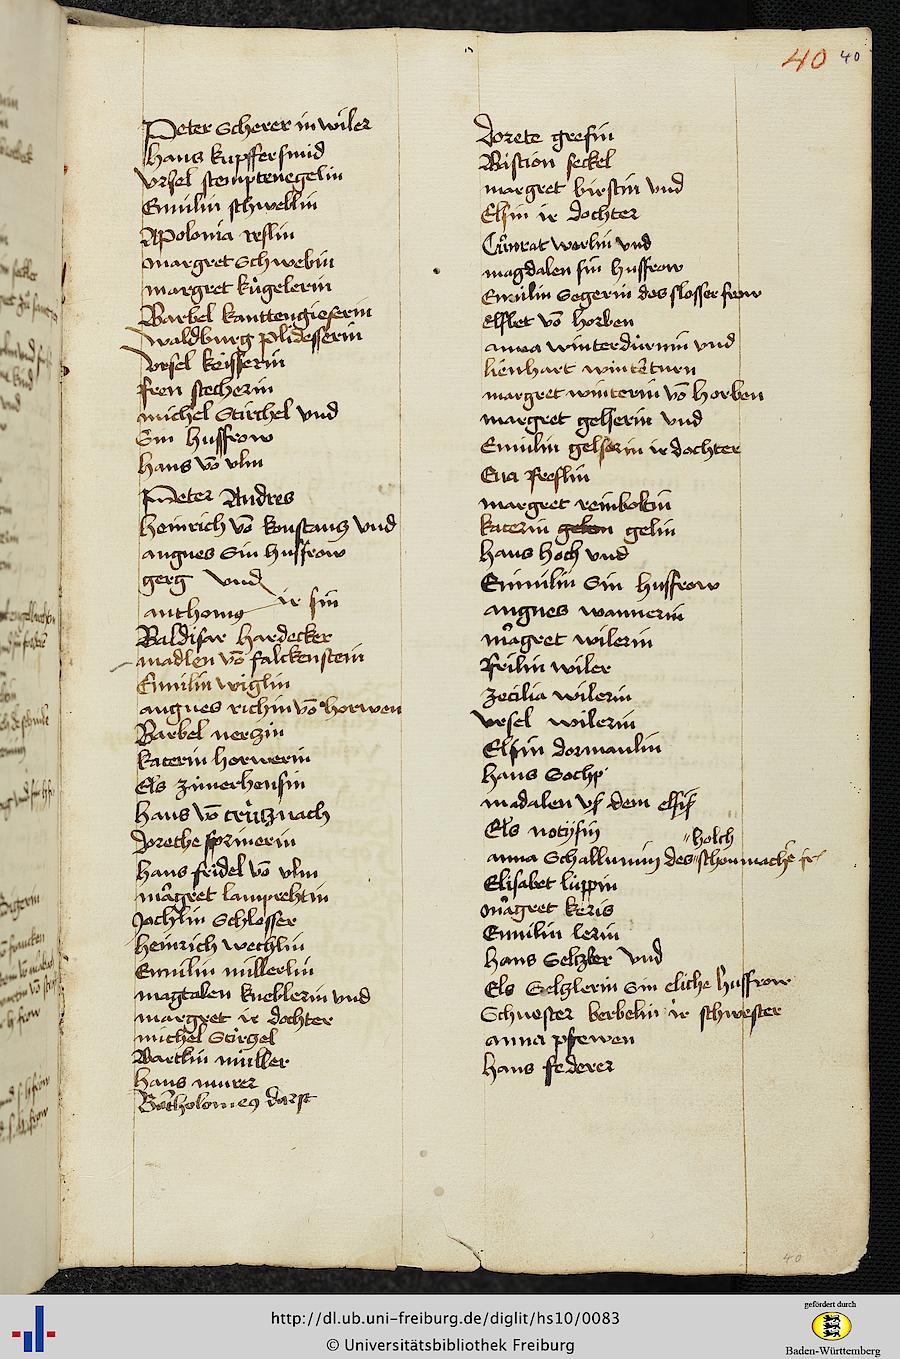 40 40
Peter Scherer in wiler
hans kupffersmid
vrsel stemptenegelin
Ennilin schweblin
APolonia reslin
margret Schwebin
margret kůgelerin
Barbel kanttengieserin
waldburg plidesserin
vrsel keisserin
fren stecherin
michel Stirchel vnd
Sin huffrow
hans vō vlm
Peter Andres
heinrich vō konstantz vnd
angnes Sin huffrow
gerg vnd
anthoniꝰ ir sin
Baldisar hardecker
madlen vō falckenstein
Ennilin wiglin
angnes richin vō horwen
Barbel nerzin
katerin horwerin
Els zimerhensin
hans vō crůtznach
dorethe sprinerin
hans fridel vō vlm
magret lamprehtin
Jochlin Schlosser
heinrich wechlin
Ennilin millerlin
magtalen kneblerin vnd
margret ir dochter
michel Stirgel
Bartlin můller
hans murer
Bartholomeꝰ darst
dorete grefin
Bastion seckel
margret birstin vnd
Elsin ir dochter
Cůnrat werlin vnd
magdalen sin huffrow
Ennilin Segerin des slosser frow
elsbet vō horben
anna winterdurnin vnd
lienhart winterturn
margret winterin vō horben
margret gelserin vnd
Ennilin gelserin ir dochter
Eua Freslin
margret reinboltin
katerin gelin
hans hoch vnd
Ennilin Sin huffrow
angnes wannerin
magret wilerin
Frilin wiler
zecilia wilerin
vrsel wilerin
Elsin dormanlin
hans Soch
madalen vs dem elses
Els
holch
anna des schonmacher
Elisabet lüppin
magret keris
Ennilin lerin
hans Seltzler vnd
Els Seltzlerin Sin eliche huffrow
Schuester berbelin ir schwester
anna pfewen
hans federer
40
http://dl.ub.uni-freiburg.de/diglit/hs10/0083
© Universitätsbibliothek Freiburg
gefördert durch
Baden-Württemberg